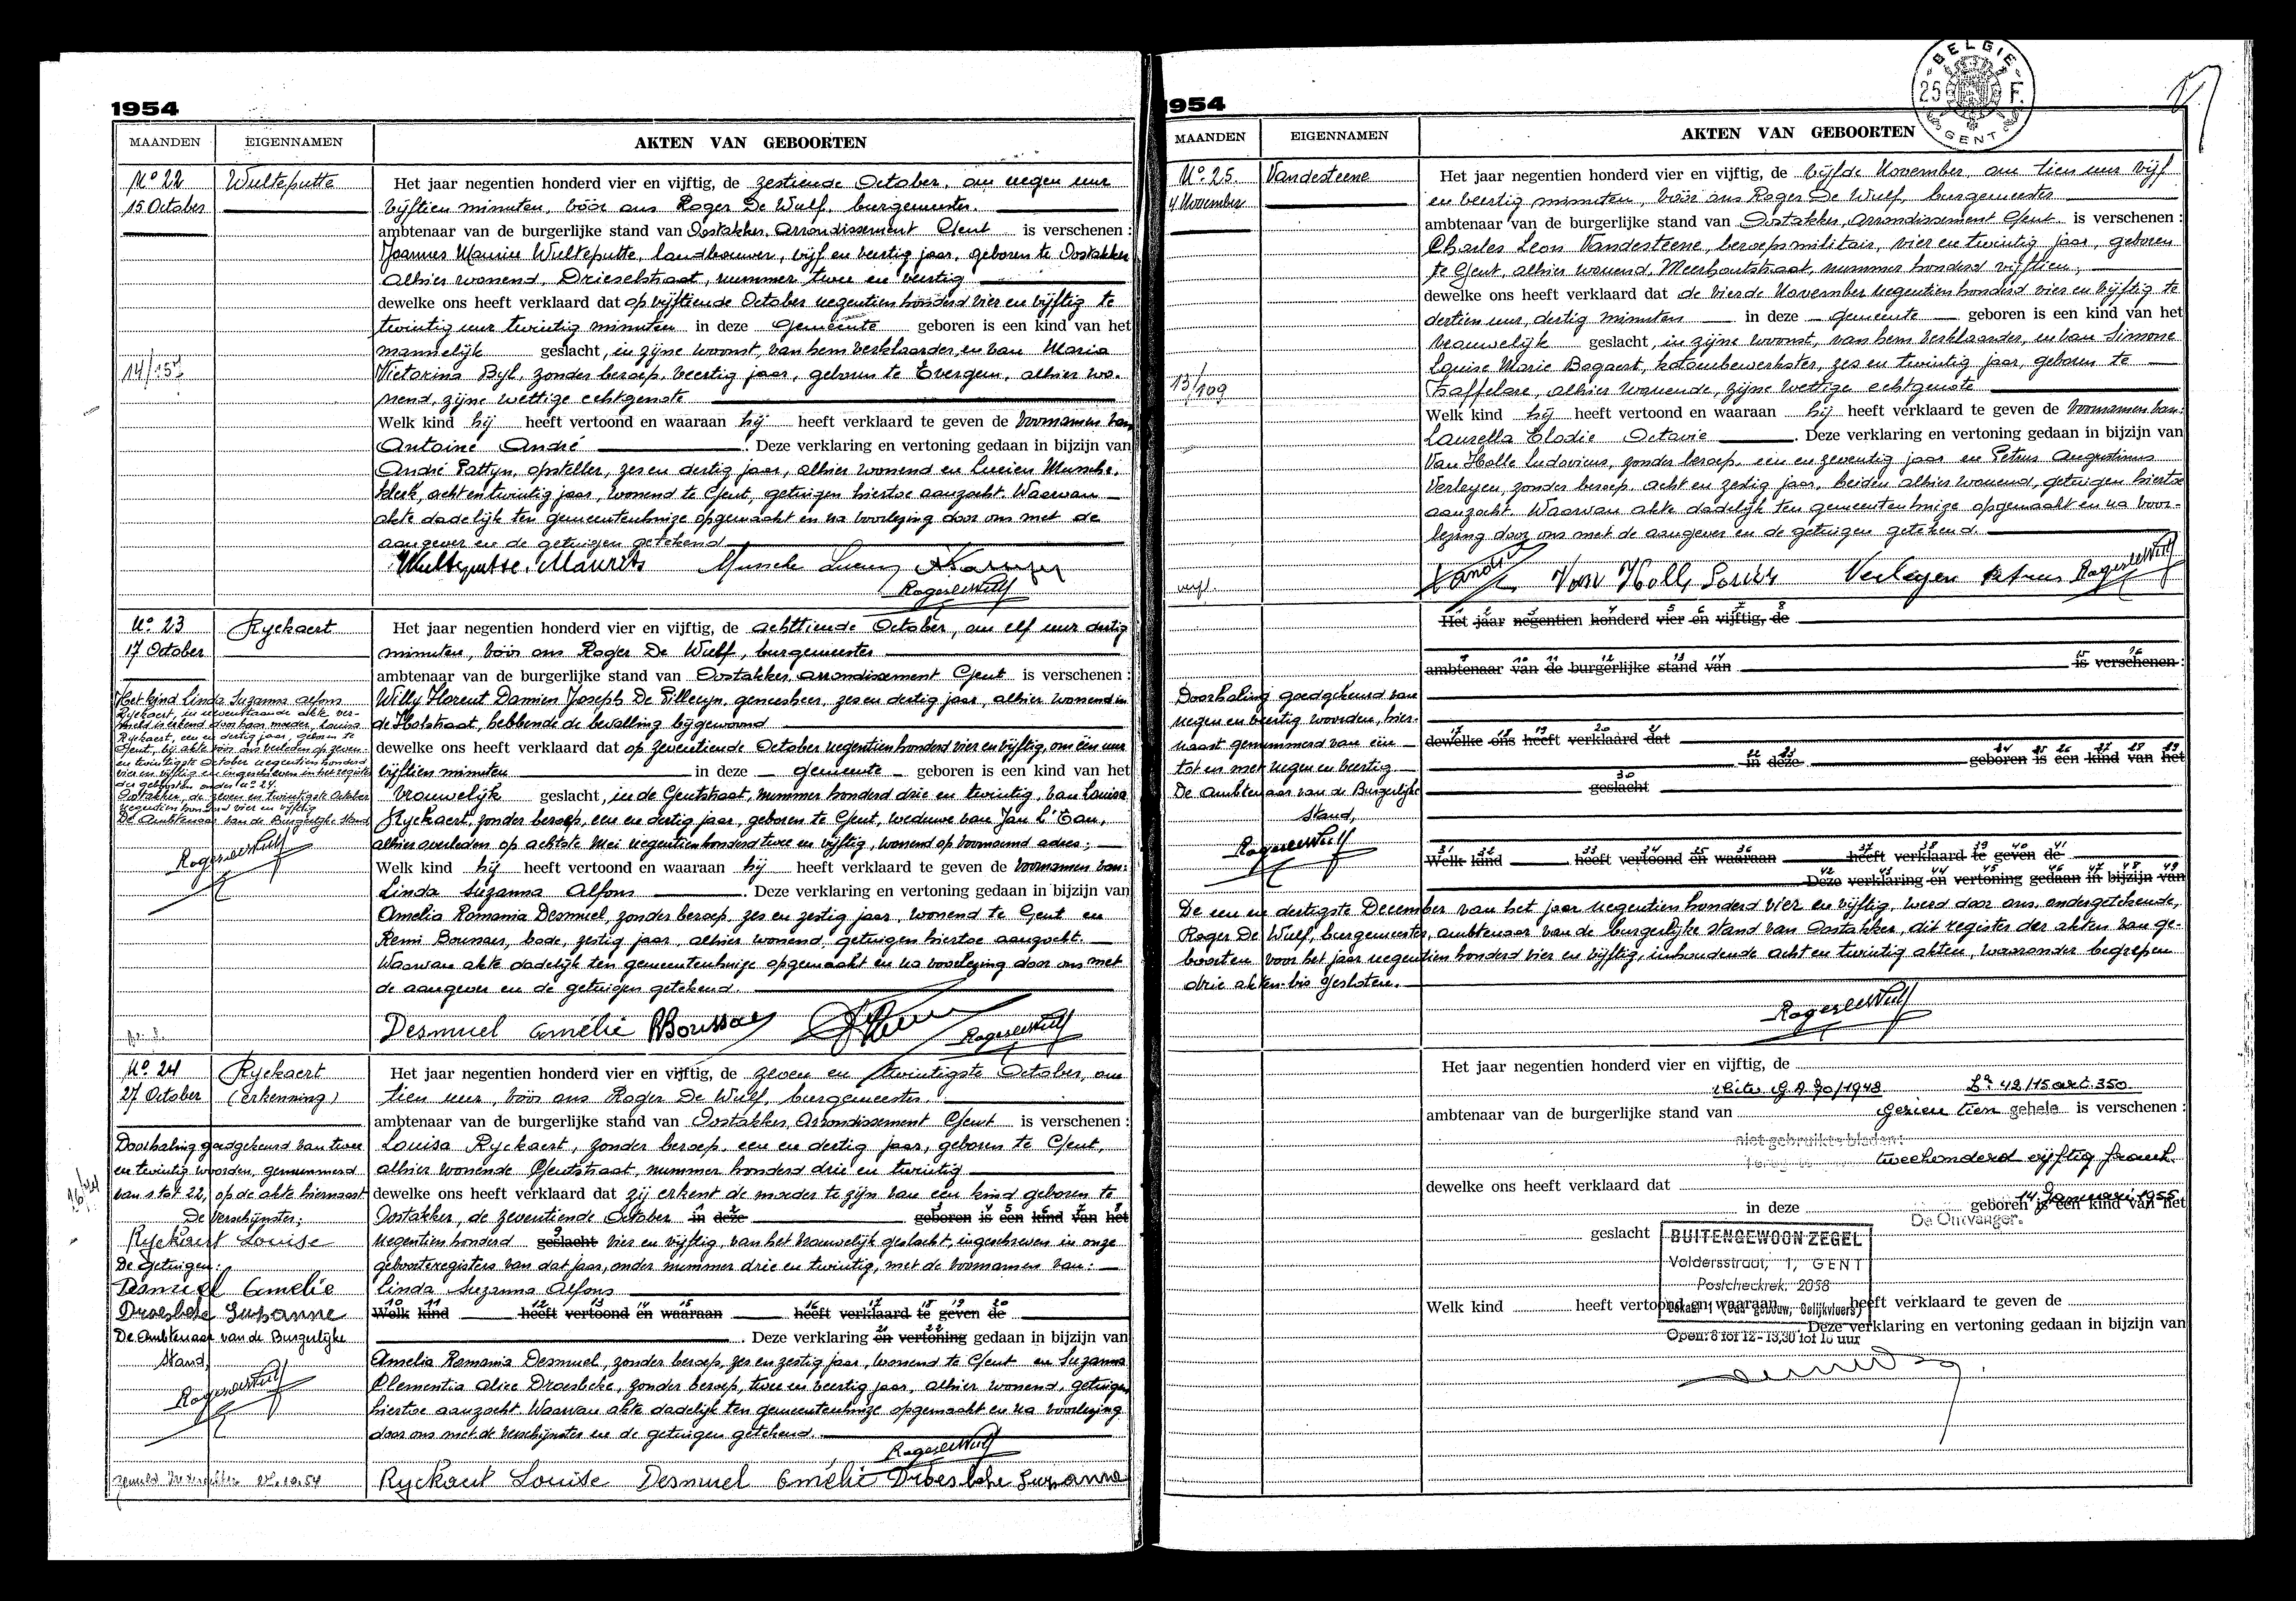 1954
MAANDEN EIGENNAMEN AKTEN VAN GEBOORTEN
No 22 Wulteputte
15 October
Het jaar negentien honderd vier en vijftig, de zestiende October, om negen uur
vijftien minuten, vóór ons Roger De Wulf, burgemeester.
ambtenaar van de burgerlijke stand van Oostakker, Arrondissement Gent is verschenen:
Joannes Maurice Wulteputte, landbouwer, vijf en veertig jaar, geboren te Oostakker
alhier wonend, Drieselstraat, nummer twee en veertig
dewelke ons heeft verklaard dat op vijftiende October negentien honderd vier en vijftig te
twintig uur twintig minuten in deze gemeente geboren is een kind van het
mannelijk geslacht, in zijne woonst, van hem verklaarder en van Maria
Victorina Byl, zonder beroep, veertig jaar, geboren te Evergem, alhier wo-
nend, zijne wettige echtgenote
Welk kind hij heeft vertoond en waaraan hij heeft verklaard te geven de voornamen van
Antoine André . Deze verklaring en vertoning gedaan in bijzijn van
André Pattyn, opsteller, zes en dertig jaar, alhier wonend en Lucien Mussche,
klerk, acht en twintig jaar, wonend te Gent, getuigen hiertoe aanzocht. Waarvan
akte dadelijk ten gemeentenhuize opgemaakt en na voorlezing door ons met de
aangever en de getuigen getekend
Wulteputte. Maurits Mussche Lucien
RogerdeWulf
No 23 Ryckaert
17 October
Het jaar negentien honderd vier en vijftig, de achttiende October, om elf uur dertig
minuten, vóór ons Roger De Wulf, burgemeester
ambtenaar van de burgerlijke stand van Oostakker, arrondissement Gent is verschenen:
Willy Florent Damien Joseph De Tilleryn, geneesheer, zes en dertig jaar, alhier wonend in
de Holstraat, hebbende de bevalling bijgewoond
dewelke ons heeft verklaard dat op zeventiende October negentien honderd vier en vijftig, om één uur
vijftien minuten in deze gemeente geboren is een kind van het
vrouwelijk geslacht, in de Gentstraat, nummer honderd drie en twintig, van Louisa
Ryckaert, zonder beroep, een en dertig jaar, geboren te Gent, weduwe van Jan L'Eau,
alhier overleden op achtste Mei negentien honderd twee en vijftig, wonend op voornoemd adres;
Welk kind hij heeft vertoond en waaraan hij heeft verklaard te geven de voornamen van:
Linda Suzanna Alfons . Deze verklaring en vertoning gedaan in bijzijn van
Amelia Romania Desmuel, zonder beroep, zes en zestig jaar, wonend te Gent en
Remi Boussaer, bode, zestig jaar, alhier wonend, getuigen hiertoe aangezocht.
Waarvan akte dadelijk ten gemeentenhuize opgemaakt en na voorlezing door ons met
de aangever en de getuigen getekend.
Desmuel Amélie RBoussaer
RogerdeWulf
Het kind Linda Suzanna Alfons
Ryckaert, in nevenstaande akte ver-
meld is erkend door haar moeder, Louisa
Ryckaert, een en dertig jaar, geboren te
Gent, bij akte vóór ons verleden op zeven
en twintigste October negentien honderd
vier en vijftig en ingeschreven in het register
der geboorten onder no 24.
Oostakker, de zeven en twintigste October
negentien honderd vier en vijftig
De Ambtenaar van de Burgerlijke Stand
RogerdeWulf
No 24 Ryckaert
27 October (erkenning)
Het jaar negentien honderd vier en vijftig, de zeven en twintigste October, om
tien uur, vóór ons Roger De Wulf, burgemeester.
ambtenaar van de burgerlijke stand van Oostakker, Arrondissement Gent is verschenen:
Louisa Ryckaert, zonder beroep, een en dertig jaar, geboren te Gent,
alhier wonende Gentstraat, nummer honderd drie en twintig
dewelke ons heeft verklaard dat zij erkent de moeder te zijn van een kind geboren te
Oostakker, de zeventiende October in deze geboren is een kind van het
negentien honderd geslacht vier en vijftig, van het vrouwelijk geslacht, ingeschreven in onze
geboorteregisters van dat jaar, onder nummer drie en twintig, met de voornamen van:
Linda Suzanna Alfons
Welk kind heeft vertoond en waaraan heeft verklaard te geven de
. Deze verklaring en vertoning gedaan in bijzijn van
Amelia Romania Desmuel, zonder beroep, zes en zestig jaar, wonend te Gent en Suzanna
Clementia Alice Droesbeke, zonder beroep, twee en veertig jaar, alhier wonend, getuigen
hiertoe aanzocht. Waarvan akte dadelijk ten gemeentenhuize opgemaakt en na voorlezing
door ons met de verschijnster en de getuigen getekend.
RogerdeWulf
Ryckaert Louise Desmuel Amélie Droesbeke Suzanne
Doorhaling goedgekeurd van twee
en twintig woorden, genummerd
van 1 tot 22, op de akte hiernaast
De verschijnster;
Ryckaert Louise
De getuigen:
Desmuel Amelie
Droesbeke Suzanne
De Ambtenaar van de Burgerlijke
Stand,
RogerdeWulf
1954
BELGIE
25 F.
GENT
MAANDEN EIGENNAMEN AKTEN VAN GEBOORTEN
No 25. Vandesteene
4 November
13/109
Het jaar negentien honderd vier en vijftig, de vijfde November, om tien uur vijf
en veertig minuten, vóór ons Roger De Wulf, burgemeester
ambtenaar van de burgerlijke stand van Oostakker, arrondissement Gent is verschenen:
Charles Leon Vandesteene, beroepsmilitair, vier en twintig jaar, geboren
te Gent, alhier wonend, Meerhoutstraat, nummer honderd vijftien,
dewelke ons heeft verklaard dat de vierde November negentien honderd vier en vijftig te
dertien uur, dertig minuten in deze gemeente geboren is een kind van het
vrouwelijk geslacht, in zijne woonst, van hem verklaarder, en van Simone
Louise Marie Bogaert, katoenbewerkster, zes en twintig jaar, geboren te
Zaffelare, alhier wonende, zijne wettige echtgenote
Welk kind hij heeft vertoond en waaraan hij heeft verklaard te geven de voornamen van:
Laurella Elodie Octavie . Deze verklaring en vertoning gedaan in bijzijn van
Van Holle Ludovicus, zonder beroep, een en zeventig jaar en Petrus Augustinus
Verleyen, zonder beroep, acht en zestig jaar, beiden alhier wonend, getuigen hiertoe
aanzocht. Waarvan akte dadelijk ten gemeentenhuize opgemaakt en na voor-
lezing door ons met de aangever en de getuigen getekend.
Van Holle Louis Verleyen Petrus RogerdeWulf
Het jaar negentien honderd vier en vijftig, de
ambtenaar van de burgerlijke stand van is verschenen:
dewelke ons heeft verklaard dat
in deze geboren is een kind van het
geslacht
Welk kind heeft vertoond en waaraan heeft verklaard te geven de
Deze verklaring en vertoning gedaan in bijzijn van
Doorhaling goedgekeurd van
negen en veertig woorden, hier-
naast genummerd van één
tot en met negen en veertig
De Ambtenaar van de Burgerlijke
Stand,
RogerdeWulf
De een en dertigste December van het jaar negentien honderd vier en vijftig, werd door ons, ondergetekende,
Roger De Wulf, burgemeester, ambtenaar van de burgerlijke stand van Oostakker, dit register der akten van ge-
boorten voor het jaar negentien honderd vier en vijftig, inhoudende acht en twintig akten, waaronder begrepen
drie akten-bis gesloten.
RogerdeWulf
Het jaar negentien honderd vier en vijftig, de
G.A. 70/1948 42/15 art. 350
ambtenaar van de burgerlijke stand van Gezien tien gehele is verschenen:
niet gebruikte bladen
tweehonderd vijftig frank
dewelke ons heeft verklaard dat
14 Januari 1955
in deze geboren is een kind van het
De Ontvanger.
geslacht
BUITENGEWOON ZEGEL
Voldersstraat, 1, GENT
Postcheckrek. 2058
Lokaal 1 (Oud gebouw, Gelijkvloers)
Open: 8 tot 12 - 13,30 tot 16 uur
Welk kind heeft vertoond en waaraan heeft verklaard te geven de
. Deze verklaring en vertoning gedaan in bijzijn van